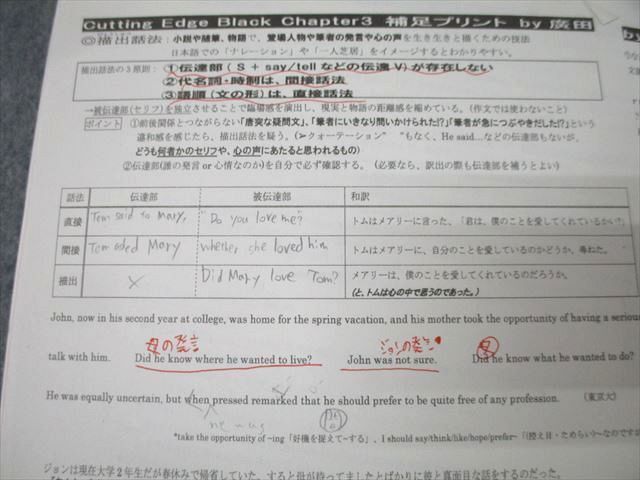 Cutting Edge Black Chapter3 補足プリント by 廣田
◎描出話法：小説や随筆、物語で、登場人物や筆者の発言や心の声を生き生きと描くための技法
日本語での「ナレーション」や「一人芝居」をイメージするとわかりやすい。
描出話法の3原則：①伝達部（S＋say/tellなどの伝達V）が存在しない
②代名詞・時制は、間接話法
③語順（文の形）は、直接話法
→被伝達部(セリフ)を独立させることで臨場感を演出し、現実と物語の距離感を縮めている。（作文では使わないこと）
ポイント ①前後関係とつながらない「唐突な疑問文」、「筆者にいきなり問いかけられた!?」「筆者が急につぶやきだした!?」という
違和感を感じたら、描出話法を疑う。(＞クォーテーション" "もなく、He said…などの伝達部もないが、
どうも何者かのセリフや、心の声にあたると思われるもの)
②伝達部(誰の発言 or 心情なのか)を自分で必ず確認する。（必要なら、訳出の際も伝達部を補うとよい）
話法 伝達部 被伝達部 和訳
直接 Tom said to Mary, "Do you love me?" トムはメアリーに言った、「君は、僕のことを愛してくれているかい？」
間接 Tom asked Mary whether she loved him トムはメアリーに、自分のことを愛しているのかどうか、尋ねた。
描出 × Did Mary love Tom? メアリーは、僕のことを愛してくれているのだろうか。
(と、トムは心の中で思うのであった。)
John, now in his second year at college, was home for the spring vacation, and his mother took the opportunity of having a serious
母の発言 ジョンの発言 母
talk with him. Did he know where he wanted to live? John was not sure. Did he know what he wanted to do?
He was equally uncertain, but when pressed remarked that he should prefer to be quite free of any profession. （東京大）
he was
*take the opportunity of ~ing「好機を捉えて~する」、I should say/think/like/hope/prefer~「(控え目・ためらい)~なのですが
ジョンは現在大学2年生だが春休みで帰省していた。すると母が待ってましたとばかりに彼と真面目な話をするのだった。